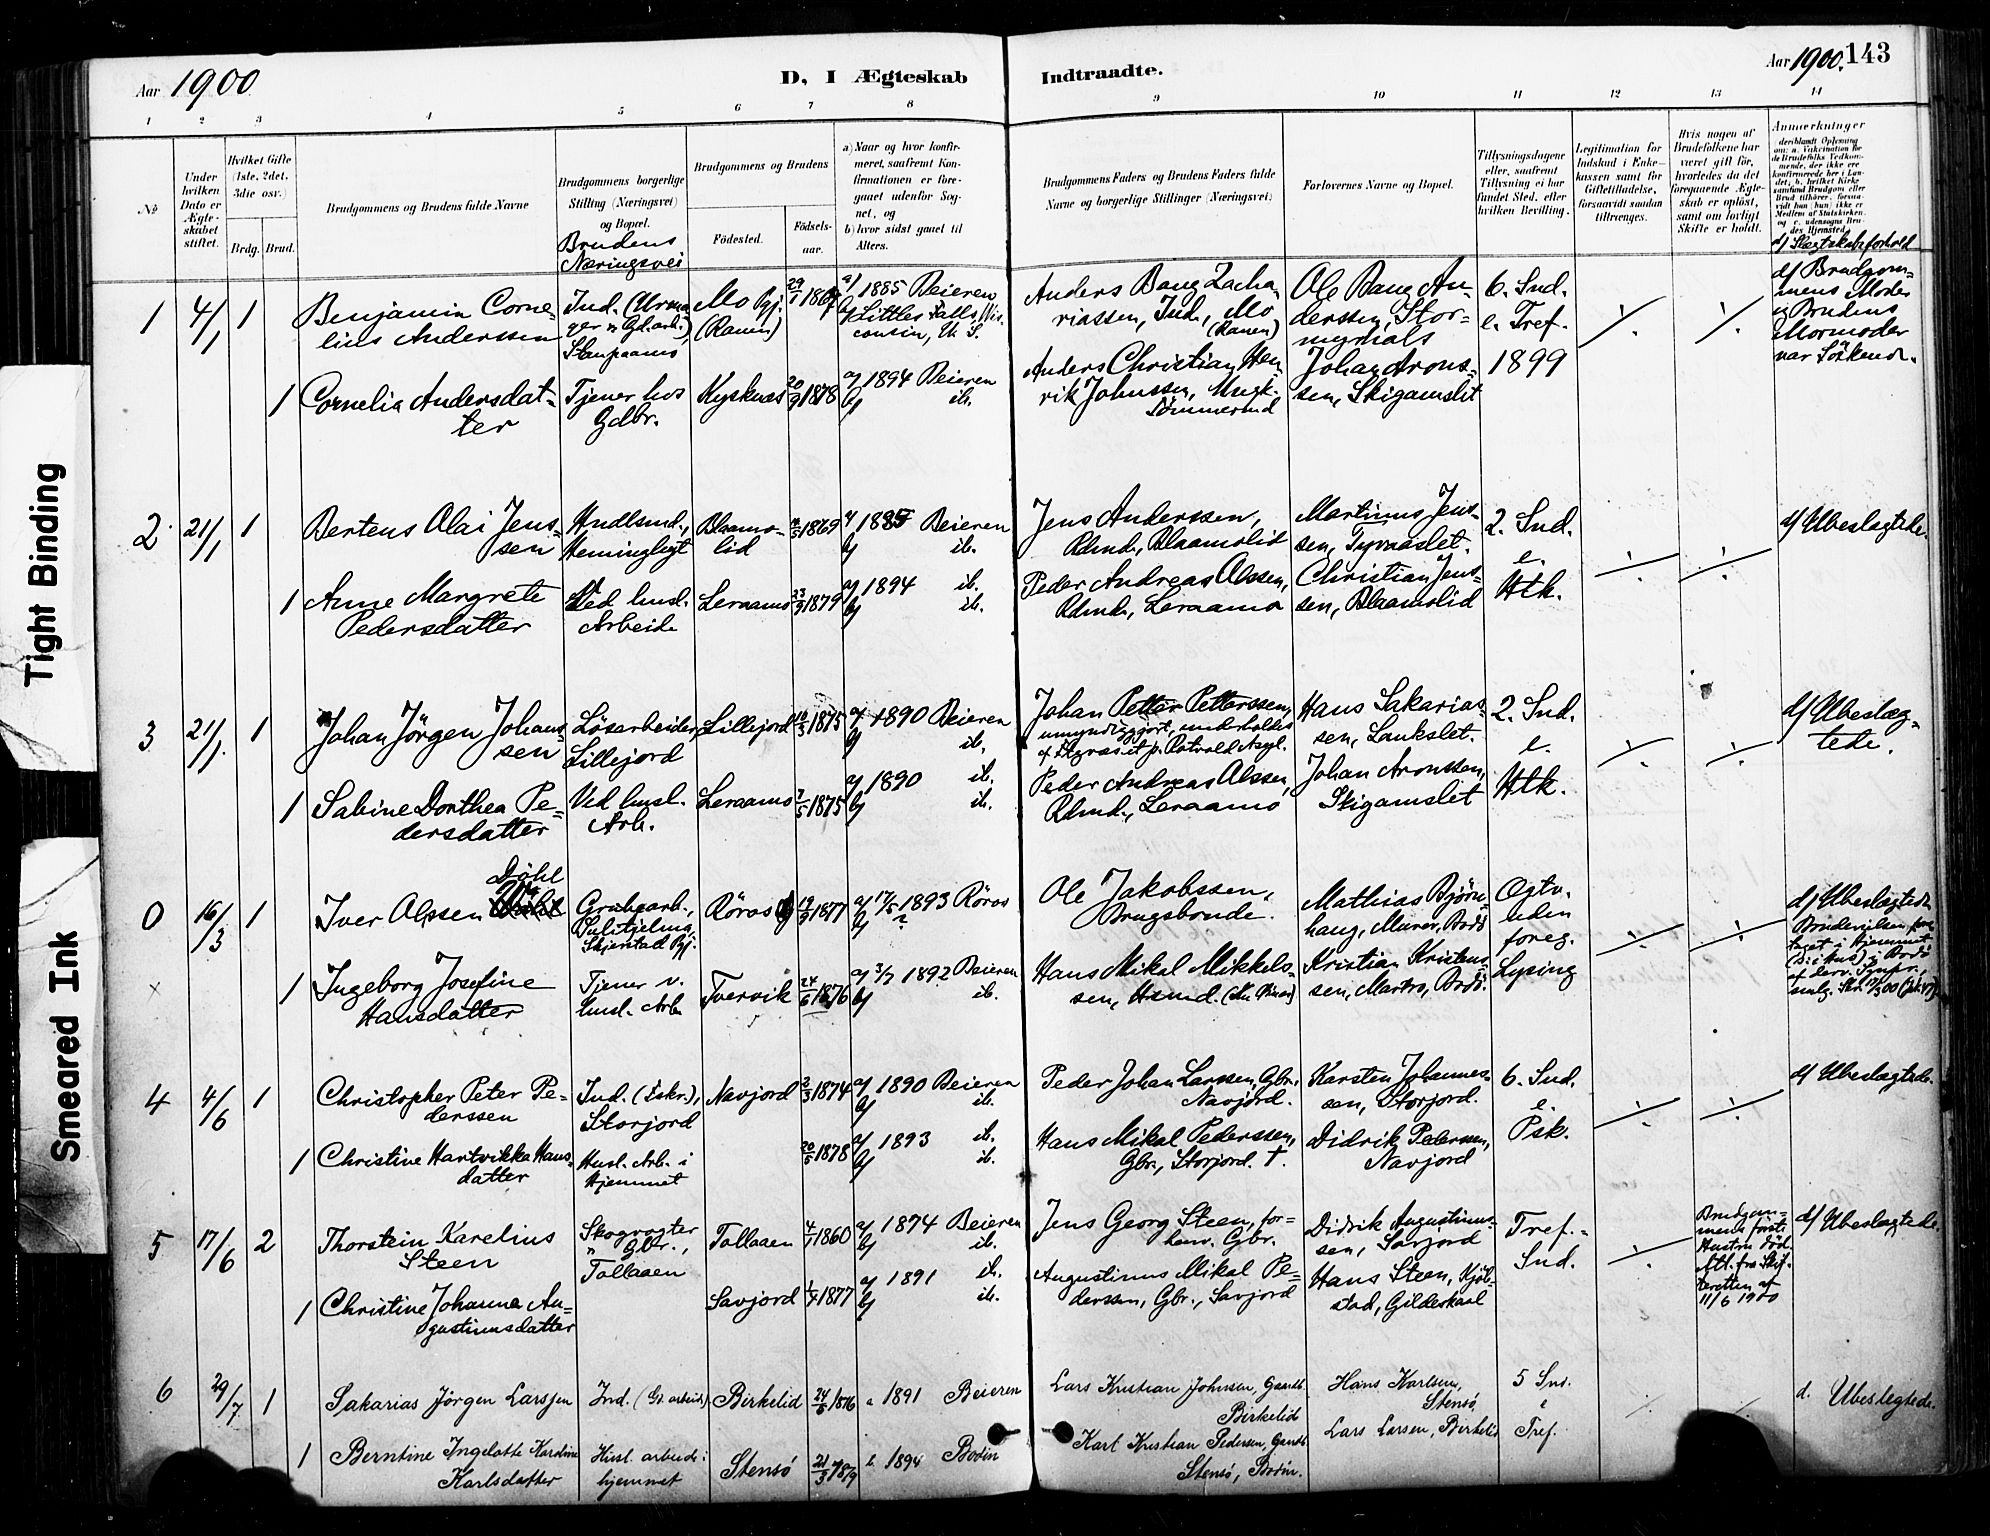 Aar 1900
D, I Ægteskab
Indtraadte.
Aar 1900. 143
1 2 3 4 5 6 7 8 9 10 11 12 13 14
No
Under hvilken Dato er Ægteskabet stiftet.
Hvilket Gifte (1ste, 2det, 3die osv.)
Brdg. Brud.
Brudgommens og Brudens fulde Navne
Brudgommens borgerlige Stilling (Næringsvei) og Bopæl.
Brudens Næringsvei
Brudgommens og Brudens
Fødested.
Fødselsaar.
a) Naar og hvor konfirmeret, saafremt Konfirmationen er foregaaet udenfor Sognet, og
b) hvor sidst gaaet til Alters.
Brudgommens Faders og Brudens Faders fulde Navne og borgerlige Stillinger (Næringsvei)
Forlovernes Navne og Bopæl.
Tillysningsdagene eller, saafremt Tillysning ei har fundet Sted, efter hvilken Bevilling.
Legitimation for Indskud i Enkekassen samt for Giftetilladelse, forsaavidt saadan tiltrænges.
Hvis nogen af Brudefolkene har været gift før, hvorledes da det foregaaende Ægteskab er opløst, samt om lovligt Skifte er holdt.
Anmerkninger
d) Slægtskabsforhold
1 4/1 1
Benjamin Cornelius Anderssen
Mo Pgj. (Ranen)
a) 1885 Beieren
b) Little Falls, Wisconsin, U. S.
Anders Bang Zachariassen, Ind., Mo (Ranen)
Ole Bang Anderssen, Stormyrmals
6. Snd. e. Tref. 1899
d) Brudgommens Moder og Brudens Mormoder var Söskende.
1 Cornelia Andersdatter
Tjener hos Gdbr.
20/9 1878
a) 1894 Beieren
b) ib.
Anders Christian Henrik Johnssen,
Johan Aronssen, Skigamslet
2. 21/1 1
Bertens Olai Jenssen
Blaamolid
1869
b) ib.
Jens Anderssen, Rdmd., Blaamolid
Martinus Jenssen,
2. Snd. e. Htk.
d) Ubeslægtede.
1 Anne Margrete Pedersdatter
Ved husl. Arbeide
Leraamo
23/3 1879
a) 1894 ib.
b) ib.
Peder Andreas Olssen, Rdmd., Leraamo
Christian Jenssen, Blaamolid
3 21/1. 1
Johan Jörgen Johanssen
Lösarbeider, Lillejord
Lillejord
1875
a) 1890 Beieren
b) ib.
Johan Petter Petterssen, umyndiggjort,
Hans Sakariassen,
2. Snd. e. Htk.
d) Ubeslægtede.
1 Sabine Dorthea Pedersdatter
Ved husl. Arb.
Leraamo
7/5 1875
a) 1890 ib.
b) ib.
Peder Andreas Olssen, Rdmd., Leraamo
Johan Aronssen, Skigamslet
0 16/3 1
Iver Olssen Döhl
Grubearb., Sulitjelma, Skjerstad Pgj.
Röros
1877
a) 17/5 1893 Röros
b) ?
Ole Jakobssen, Brugsbonde.
Mathias Björnhaug, Murer, Bodö
Ogtv. uden foreg. Lysing
d) Ubeslægtede
× 1 Ingeborg Josefine Hansdatter
Tjener v. husl. Arb.
Tvervik
24/6 1876
a) 3/7 1892 Beieren
b) ib.
Hans Mikal Mikkelssen,
Kristian Kristenssen, Bodö.
4 4/6 1
Christopher Peter Pederssen
Ind. (Fskr.), Storjord
Navjord
2/3 1874
a) 1890 Beieren
b) ib.
Peder Johan Larssen, Gbr. Navjord.
Karsten Johannessen, Storjord.
6. Snd. e. Psk.
d) Ubeslægtede.
1 Christine Hartvikka Hansdatter
Husl. Arb. i Hjemmet
20/5 1878
a) 1893 ib.
b) ib.
Hans Mikal Pederssen, Gbr., Storjord. †.
Didrik Pederssen, Navjord
5 17/6 2
Thorstein Karelius Steen
Skogvogter Gbr., Tollaaen
Tollaaen
4/1 1860
a) 1874 Beieren
b) ib.
Jens Georg Steen, forhenv. Gbr.
Didrik Augustinussen, Savjord
Tref. Snd.
Brudgommens første Hustru död. Att. fra Skifteretten af 11/6 1900
d) Ubeslægtede.
1 Christine Johanna Augustinusdatter
Savjord
1877
a) 1891 ib.
b) ib.
Augustinus Mikal Pederssen, Gbr., Savjord
Hans Steen, Gildeskaal
6 29/7 1
Sakarias Jørgen Larssen
Ind. (Gd. arbeid.)
Birkelid
1876
a 1891 Beieren
Lars Kristian Johnsen, Gaardb. Birkelid
Hans Karlsen, Stensø
5 Snd. e Tref.
d. Ubeslegtede.
1 Berntine Ingelotte Kardine Karlsdatter
Husl. arbeide i hjemmet
Stensø
b. 1894 Bodin
Karl Kristian Pedersen, Gaardb. Stensø, Bodin.
Lars Larsen, Birkelid
Tight Binding
Smeared Ink